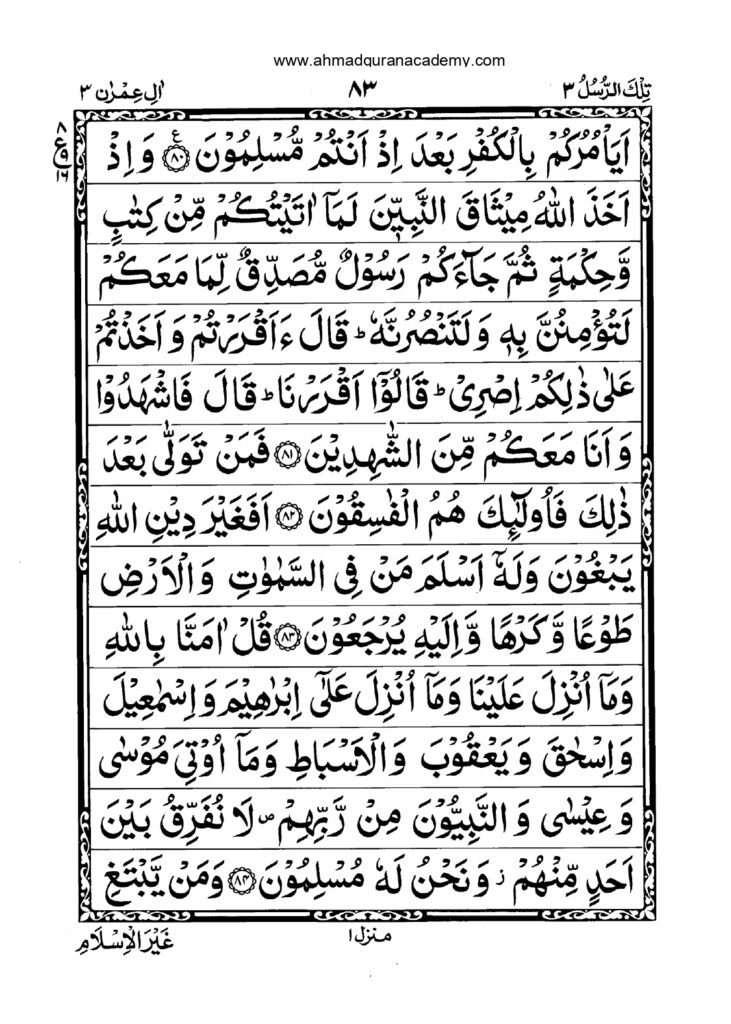 www.ahmadquranacademy.com
تِلْكَ الرُّسُلُ ٣ ٨٣ اٰلِ عِمْرٰن ٣
اَيَاْمُرُكُمْ بِالْكُفْرِ بَعْدَ اِذْ اَنْتُمْ مُّسْلِمُوْنَ ۧ‏﴿٨٠﴾ وَ اِذْ
٨ ع ٩ ١٦
اَخَذَ اللّٰهُ مِيْثَاقَ النَّبِيّٖنَ لَمَاۤ اٰتَيْتُكُمْ مِّنْ كِتٰبٍ
وَّحِكْمَةٍ ثُمَّ جَآءَكُمْ رَسُوْلٌ مُّصَدِّقٌ لِّمَا مَعَكُمْ
لَتُؤْمِنُنَّ بِهٖ وَ لَتَنْصُرُنَّهٗ ؕ قَالَ ءَاَقْرَرْتُمْ وَ اَخَذْتُمْ
عَلٰى ذٰلِكُمْ اِصْرِيْ ؕ قَالُوْۤا اَقْرَرْنَا ؕ قَالَ فَاشْهَدُوْا
وَ اَنَا مَعَكُمْ مِّنَ الشّٰهِدِيْنَ ﴿٨١﴾ فَمَنْ تَوَلّٰى بَعْدَ
ذٰلِكَ فَاُولٰٓئِكَ هُمُ الْفٰسِقُوْنَ ﴿٨٢﴾ اَفَغَيْرَ دِيْنِ اللّٰهِ
يَبْغُوْنَ وَلَهٗۤ اَسْلَمَ مَنْ فِي السَّمٰوٰتِ وَالْاَرْضِ
طَوْعًا وَّ كَرْهًا وَّ اِلَيْهِ يُرْجَعُوْنَ ﴿٨٣﴾ قُلْ اٰمَنَّا بِاللّٰهِ
وَمَاۤ اُنْزِلَ عَلَيْنَا وَمَاۤ اُنْزِلَ عَلٰٓى اِبْرٰهِيْمَ وَ اِسْمٰعِيْلَ
وَ اِسْحٰقَ وَ يَعْقُوْبَ وَالْاَسْبَاطِ وَمَاۤ اُوْتِيَ مُوْسٰى
وَ عِيْسٰى وَ النَّبِيُّوْنَ مِنْ رَّبِّهِمْ ۪ لَا نُفَرِّقُ بَيْنَ
اَحَدٍ مِّنْهُمْ ز وَنَحْنُ لَهٗ مُسْلِمُوْنَ ﴿٨٤﴾ وَمَنْ يَّبْتَغِ
منزل ١
غَيْرَ الْاِسْلَامِ